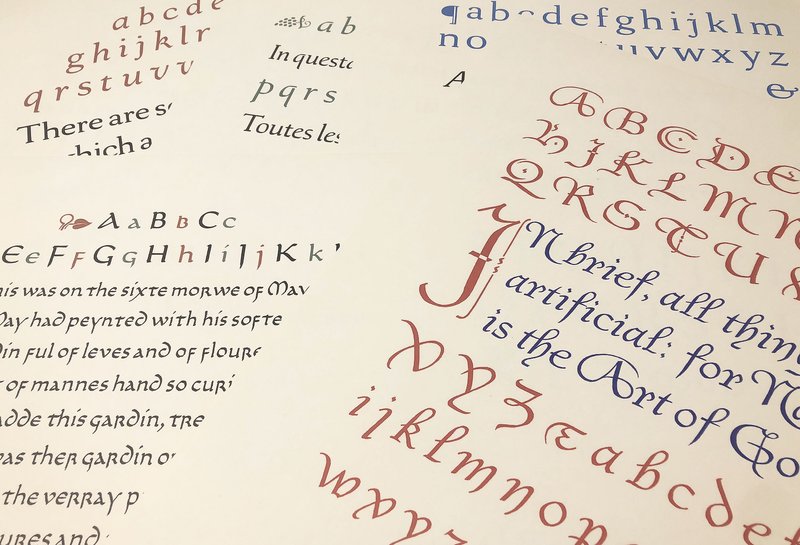 a b c d e
g h i j k l r
q r s t u v v
There are s
which a
a b
In questo
p q r s
Toutes les
¶ a b c d e f g h i j k l m
n o u v w x y z
&
A
A a B B C c
E e F F G G H h I i J j K k
was on the sixte morwe of May
May had peynted with his softe
ful of leves and of floure
of mannes hand so curi
this gardin, tre
was ther gardin o
the verray p
and
A B C D E
H J K L M N
Q R S T U
JN brief, all thin
artificial: for Na
is the Art of Go
X Y Z & a b c d e f
i j k l m n o p
w x y z